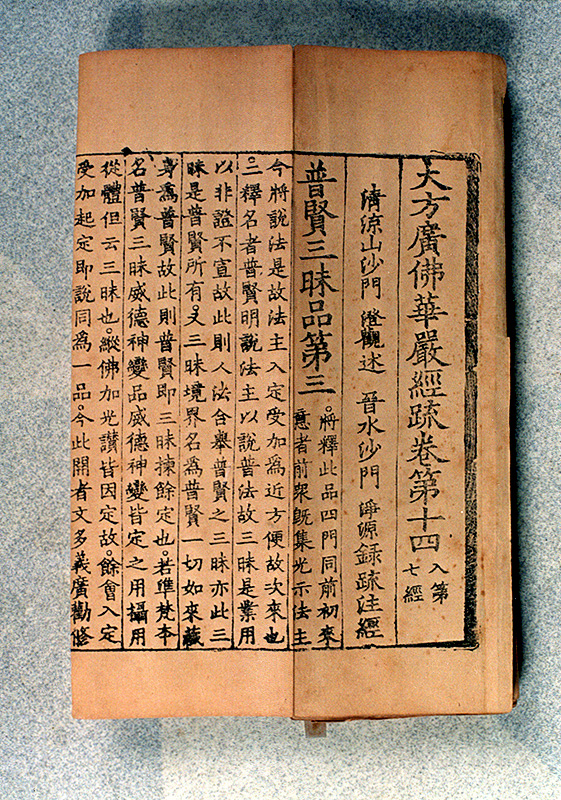 大方廣佛華嚴經疏卷第十四 入第七經
清涼山沙門 澄觀述 晉水沙門 淨源錄疏注經
普賢三昧品第三 將釋此品四門同前初來
意者前衆旣集光示法主
今將說法是故法主入定受加爲近方便故次來也
二釋名者普賢明說法主以說普法故三昧是業用
以非證不宣故此則人法合舉普賢之三昧亦此三
昧是普賢所有又三昧境界名為普賢一切如來藏
身爲普賢故此則普賢即三昧揀餘定也若準梵本
名普賢三昧威德神變品威德神變皆定之用攝用
從體但云三昧也縱佛加光讚皆因定故餘會入定
受加起定即說同為一品今此開者文多義廣勸修